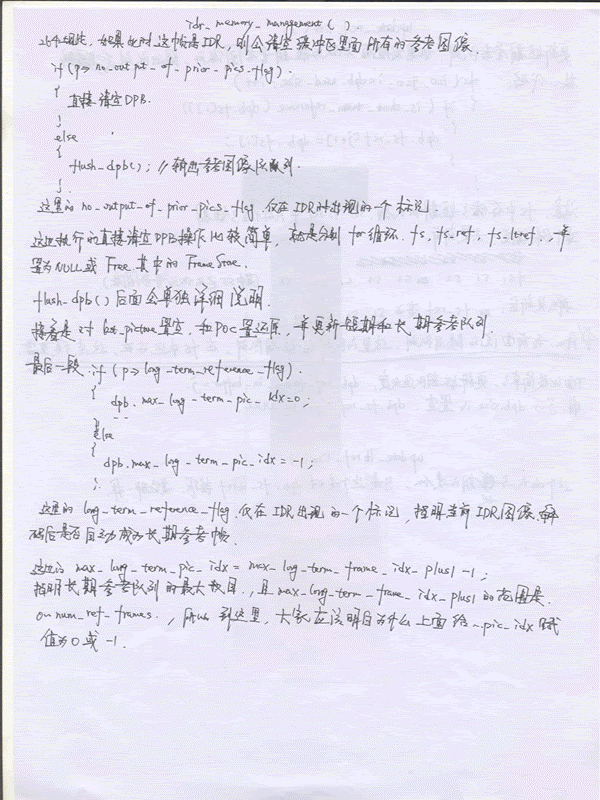 idr_memory_management( )
如果此时这帧是IDR, 则会清空缓冲区里面所有的参考图像.
if (p→no_output_of_prior_pics_flag)
{
直接清空DPB.
}
else
{
flush_dpb(); //输出参考图像队列.
}.
这里的 no_output_of_prior_pics_flag 仅在IDR时出现的一个标记
这边执行的直接清空DPB操作比较简单, 就是分别 for循环. fs, fs_ref, fs_ltref, 并
置为NULL或Free 其中的 FrameStore.
flush_dpb() 后面会单独详细说明.
接着是对 last_picture置空, 和POC置还原, 并更新短期和长期参考队列.
最后一段. if (p→long_term_reference_flag).
{
dpb.max_long_term_pic_idx=0;
}
else
{
dpb.max_long_term_pic_idx = -1;
}.
这里的 long_term_reference_flag 仅在IDR出现的一个标记, 指明当前IDR图像解
码后是否自动成为长期参考帧.
这边的 max_long_term_pic_idx = max_long_term_frame_idx_plus1 -1;
指明长期参考队列的最大数目, 且 max_long_term_frame_idx_plus1 的范围是
0~num_ref_frames., 所以到这里, 大家应该明白为什么上面给_pic_idx 赋
值为0或 -1.